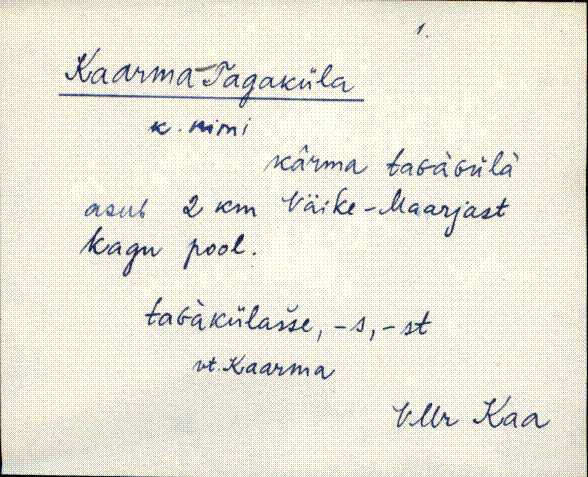 1.
Kaarma-Tagaküla
k. nimi
kārma taɢàɢülà
asub 2 km Väike-Maarjast
kagu pool.
taɢàkülašše, -s, -st
vt. Kaarma
VMr Kaa